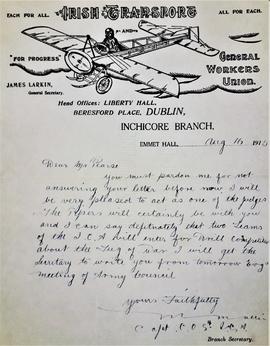 EACH FOR ALL. IRISH TRANSPORT ALL FOR EACH.
AND
"FOR PROGRESS" GENERAL
JAMES LARKIN, WORKERS
General Secretary. UNION.
Head Offices: LIBERTY HALL,
BERESFORD PLACE, DUBLIN,
INCHICORE BRANCH.
EMMET HALL, Aug 16 191
Dear Mr Pearse
You must pardon me for not
answering your letter before now I will
be very pleased to act as one of the judges
The Pipers will certainly be with you
and I can say definitely that two teams
of the I.C.A will enter for Drill Competition
about the Tug of War I will get the
Secretary to write you from tomorrow Evgs
meeting of Army Council
Yours Faithfully
Capt. C.O.S. I.C.A
Branch Secretary.